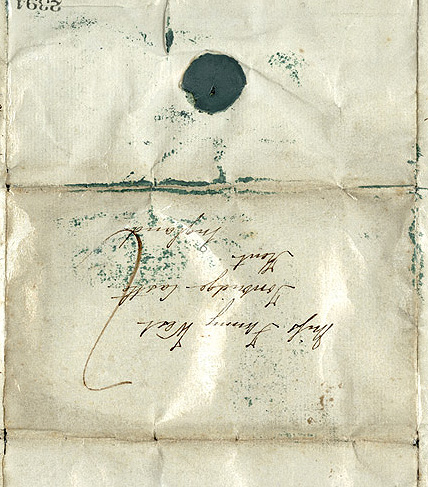 Miss Fanny West
Tonbridge Castle
Kent
England
2391